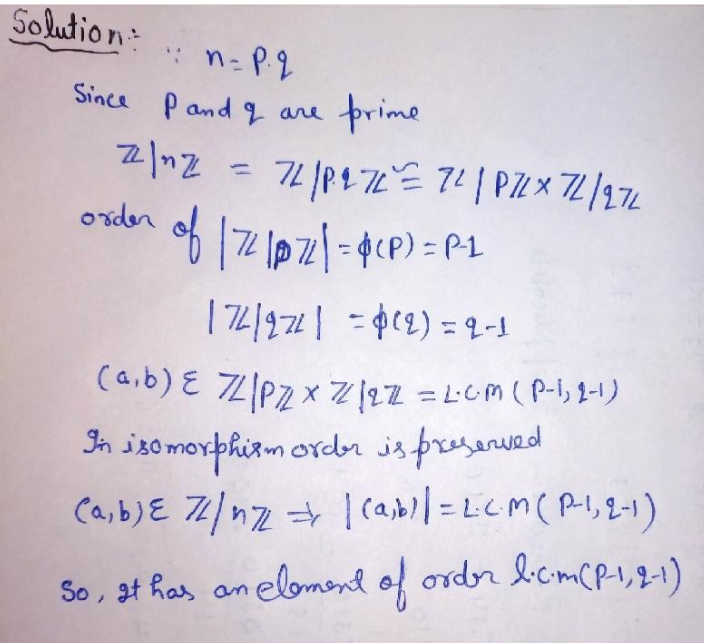 Solution:
∵ n = p.q
Since P and q are prime
ℤ|nℤ = ℤ/p.qℤ ≅ ℤ | pℤ × ℤ/qℤ
order of |ℤ|pℤ| = ϕ(P) = P-1
|ℤ|qℤ| = ϕ(q) = q-1
(a,b) ε ℤ|pℤ × ℤ|qℤ = L.C.M (P-1, q-1)
In isomorphism order is preserved
(a,b) ε ℤ/nℤ ⇒ |(a,b)| = L.C.M (P-1, q-1)
So, It has an element of order l.c.m(P-1, q-1)